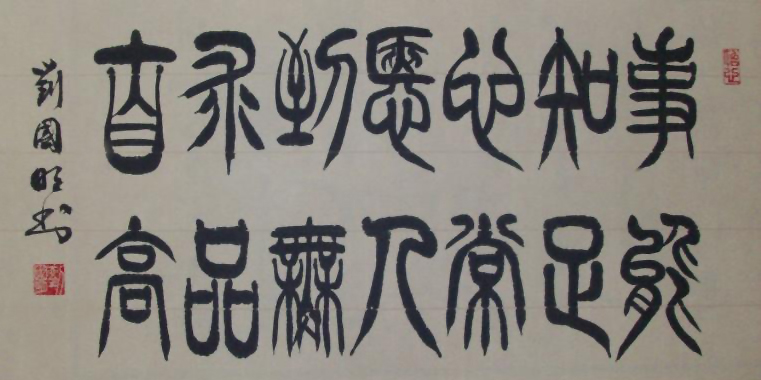 事能
知足
心常
愜人
到無
求品
自高
劉國明書